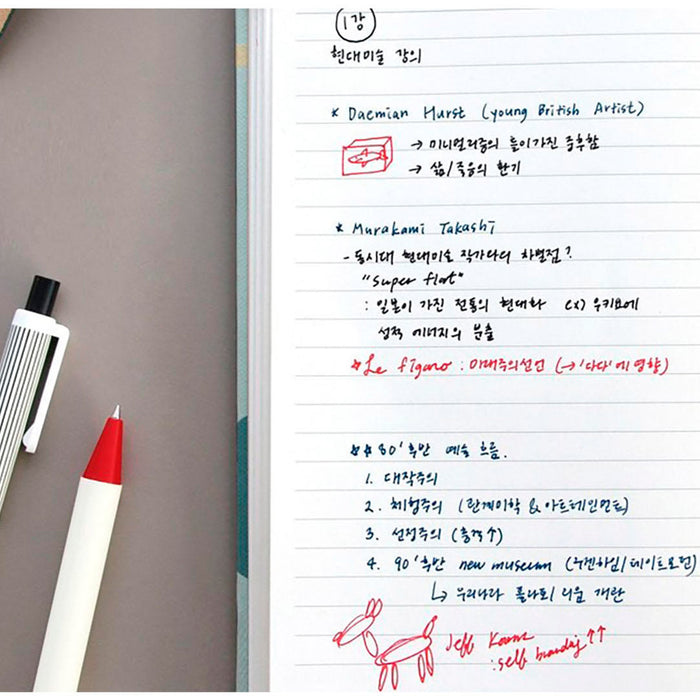 1강
현대미술 강의
* Daemian Hurst (young British Artist)
→ 미니멀리즘의 틀이 가진 중후함
→ 삶/죽음의 환기
* Murakami Takashi
- 동시대 현대미술 작가와의 차별점?
"super flat"
: 일본이 가진 전통의 현대화 ex) 우키요에
성적 에너지의 분출
* Le figaro : 미래주의선언 (→'다다'에 영향)
** 80' 후반 예술 흐름.
1. 대작주의
2. 체험주의 (관계미학 & 아트테인먼트)
3. 선정주의 (충격↑)
4. 90' 후반 new museum (구겐하임/테이트모던)
↳ 우리나라 리움 개관
Jeff Koons
: self branding ↑↑